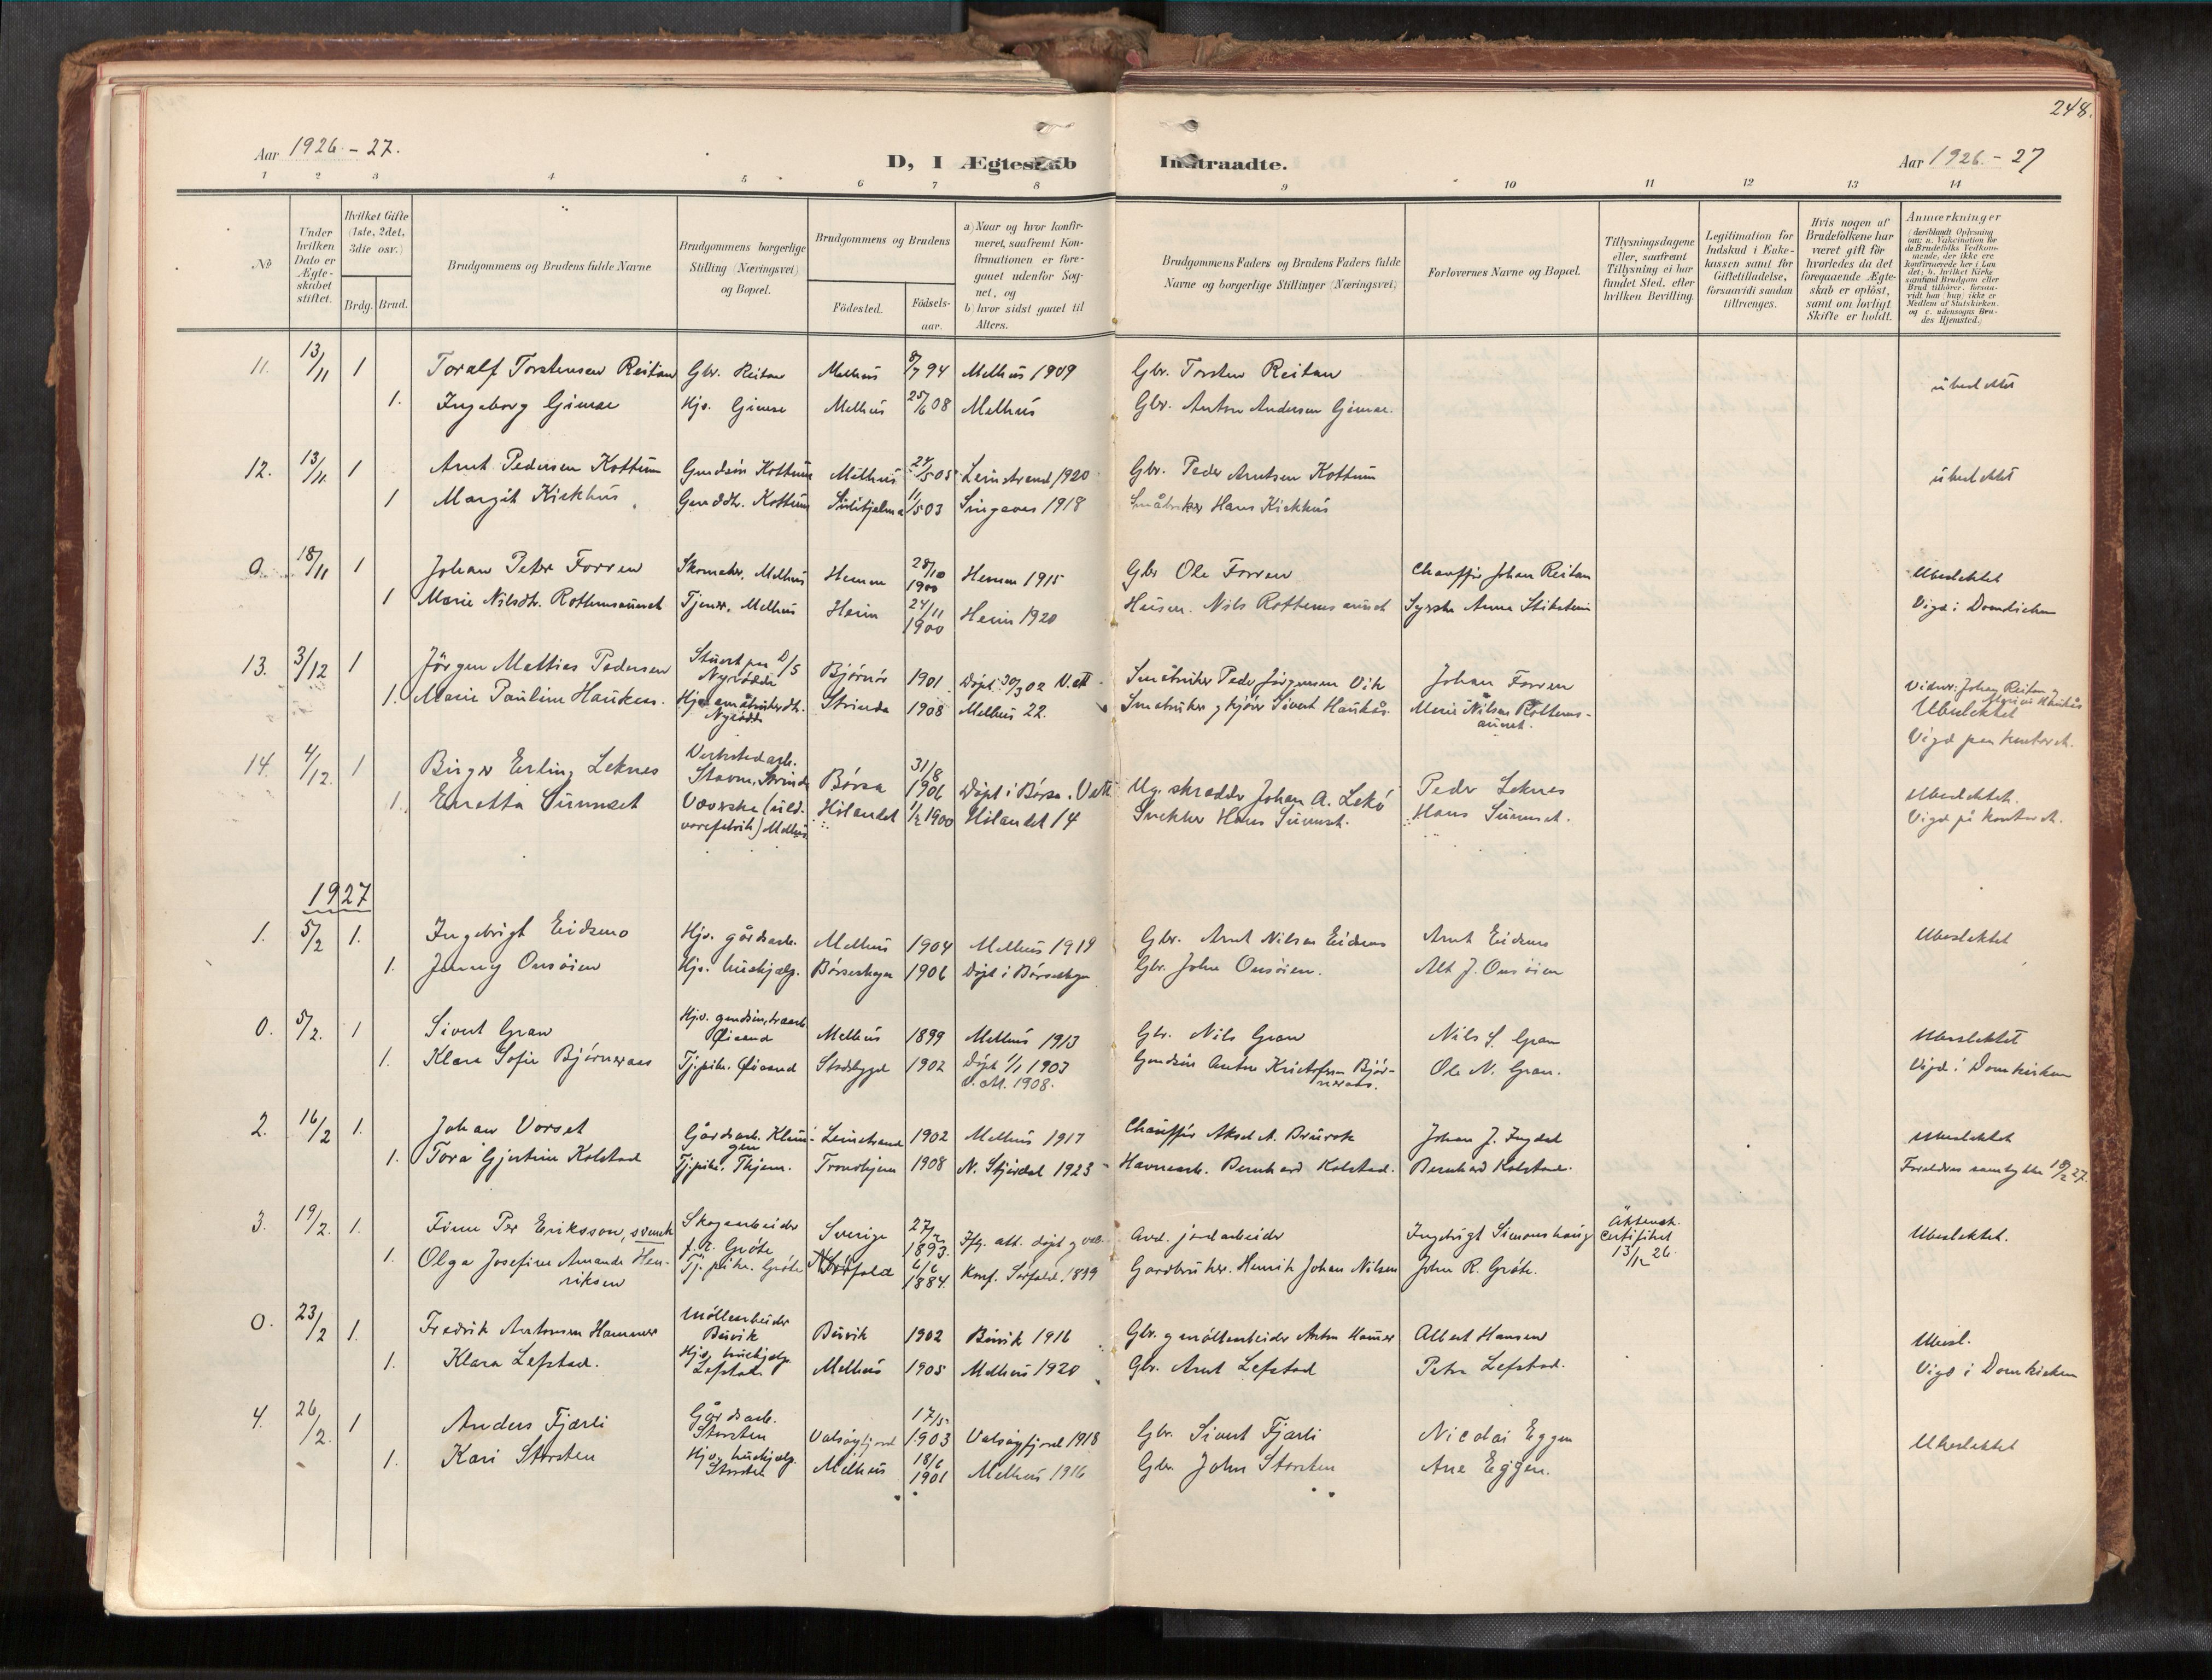 248.
Aar 1926 - 27.
D, I Ægteskab Indtraadte.
Aar 1926 - 27
1 2 3 4 5 6 7 8 9 10 11 12 13 14
No
Under hvilken Dato er Ægteskabet stiftet.
Hvilket Gifte (1ste, 2det, 3die osv.)
Brdg. Brud.
Brudgommens og Brudens fulde Navne
Brudgommens borgerlige Stilling (Næringsvei) og Bopæl.
Brudgommens og Brudens
Fødested. Fødselsaar.
a) Naar og hvor konfirmeret, saafremt Konfirmationen er foregaaet udenfor Sognet, og
b) hvor sidst gaaet til Alters.
Brudgommens Faders og Brudens Faders fulde Navne og borgerlige Stillinger (Næringsvei)
Forlovernes Navne og Bopæl.
Tillysningsdagene eller, saafremt Tillysning ei har fundet Sted, efter hvilken Bevilling.
Legitimation for Indskud i Enkekassen samt for Giftetilladelse, forsaavidt saadan tiltrænges.
Hvis nogen af Brudefolkene har været gift før hvorledes da det foregaaende Ægteskab er opløst, samt om lovligt Skifte er holdt.
Anmærkninger
11. 13/11 1 Toralf Torstensen Reitan Gbr. Reitan Melhus 8/7 94 Melhus 1909 Gbr. Torsten Reitan ubeslektet
1. Ingeborg Gimse Hjv. Gimse Melhus 25/6 08 Melhus Gbr. Anton Andersen Gimse.
12. 13/11 1 Arnt Pedersen Kottum Grndsøn Kottum Melhus 24/5 05 Leinstrand 1920 Gbr. Peder Arntsen Kottum ubeslektet
1 Margit Kirkhus Kottum Sulitjelma 11/5 03 Singsaas 1918 Småbruker Hans Kirkhus
0. 18/11 1 Johan Peter Forren Skomaker, Melhus Hemne 28/10 1900 Hemne 1915 Gbr Ole Forren Chauffør Johan Reitan Ubeslektet
1 Marie Nilsdtr. Rottemsaunet Tjener, Melhus Heim 24/11 1900 Heim 1920 Husm. Nils Rottemsaunet Syerske Anna Vigd i Domkirken
13. 3/12 1 Jørgen Mathias Pedersen Stuert paa D/S Bjørnør 1901 Døpt 30/3 02 V. att. Småbruker Peder Jørgensen Vik Johan Forren Vidner: Johan Reitan
1. Marie Pauline Haukaas. Strinda 1908 Melhus 22. Småbruker og kjører Sivert Haukås. Marie Nilsen Rottemsaunet. Ubeslektet
Vigd paa kontoret.
14. 4/12. 1 Birger Erling Leknes Verkstedarb. Stavne, Strinda Børsa 31/8 1906 Døpt i Børsa. V att Ug. skrædder Johan A. Lekø Peder Leknes Ubeslektet.
1. Enretta Sunnset Væverske (uldvarefabrik) Melhus Hølandet 11/2 1900 Hølandet 14 Snekker Hans Sunnset. Hans Sunnset. Vigd på kontoret.
1927
1. 5/2 1. Ingebrigt Eidsmo Hjv. gårdsarb. Melhus 1904 Melhus 1919 Gbr. Arnt Nilsen Eidsmo Arnt Eidsmo Ubeslektet
1. Jenny Onsøien Hjv. hushjælp. Børseskogn 1906 Døpt i Børseskogn Gbr. John Onsøien. Alb J. Onsøien
0. 5/2. 1 Sivert Gran Øisand Melhus 1899 Melhus 1913 Gbr. Nils Gran Nils S. Gran Ubeslektet
1. Klara Sofie Bjørneraas Tj.pike. Øisand Stadsbygd 1902 Døpt 1/1 1903 V. att. 1908. Grndsøn Anton Kristofersen Bjørneraas. Ole N. Gran. Vigd i Domkirken
2. 16/2 1. Johan Vorset Gårdsarb. Klungen Leinstrand 1902 Melhus 1917 Chauffør Aksel A. Johan J. Ingdal Ubeslektet
1. Tora Gjertine Kolstad Tj.pike. Thjem. Trondhjem 1908 N. Stjørdal 1923 Havnearb. Bernhard Kolstad. Bernhard Kolstad. Forældres samtykke 18/2 27.
3. 19/2. 1. Finn Per Eriksson, svensk Skogarbeider Sverige 27/2 1893. Ifg. att. døpt og vac. Avd. jordarbeider Ingebrigt Simonshaug Äktensk. certifikat 13/12 26 Ubeslektet.
1. Olga Josefine Amanda Henriksen Tj. pike. Grøte Sørfold 6/6 1884. Konf. Sørfold. 1899 Gardbruker. Henrik Johan Nilsen John R. Grøte.
0. 23/2 1. Fredrik Antonsen Hammer Møllearbeider Buvik Buvik 1902 Buvik 1916 Gbr. og møllearbeider Anton Hamer Albert Hansen Ubesl.
1. Klara Lefstad. Hjv. hushjælp. Lefstad. Melhus 1905 Melhus 1920 Gbr. Arnt Lefstad Peter Lefstad. Vigd i Domkirken
4. 26/2. 1 Anders Fjærli Gårdsarb. Storsten Valsøyfjord 17/5 1903 Valsøyfjord 1918 Gbr. Sivert Fjærli Nicolai Eggen Ubeslektet
1. Kari Storsten Hjv. hushjælp. Storsten Melhus 18/6 1901 Melhus 1916 Gbr. John Storsten Ane Eggen.